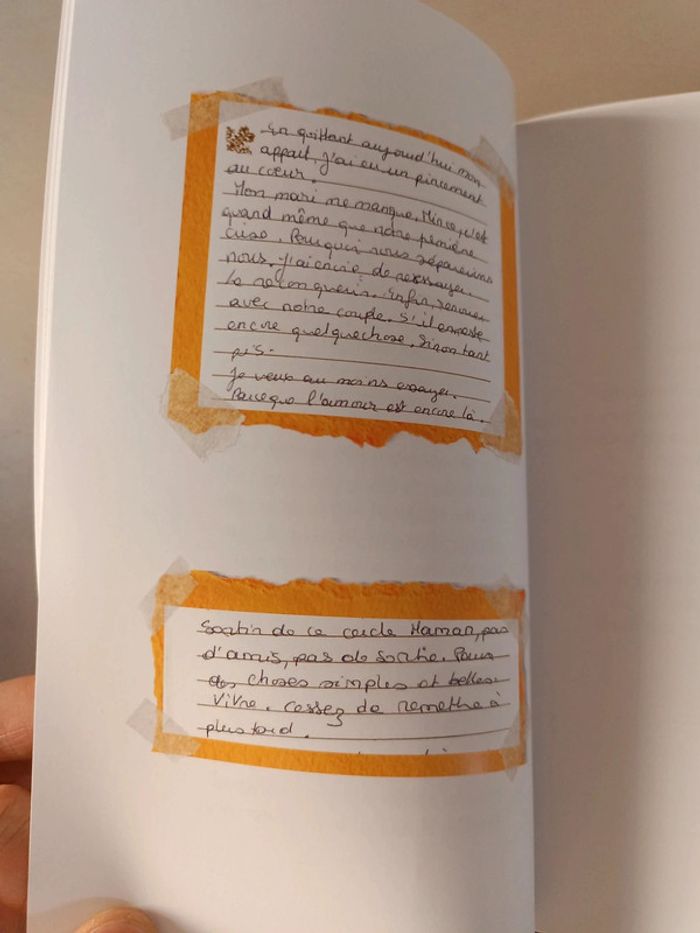 En quittant aujourd'hui mon
appart, j'ai eu un pincement
au coeur.
Mon mari me manque. Mince, c'est
quand même que notre première
crise. Pourquoi nous séparerions
nous. J'ai envie de ressayer.
Le reconquérir. Enfin, renouer
avec notre couple. S'il en reste
encore quelque chose, sinon tant
pis.
Je veux au moins essayer.
Parceque l'amour est encore là.
Sortir de ce cercle Maman, pas
d'amis, pas de sortie. Pour
des choses simples et belles.
Vivre. Cessez de remettre à
plus tard.